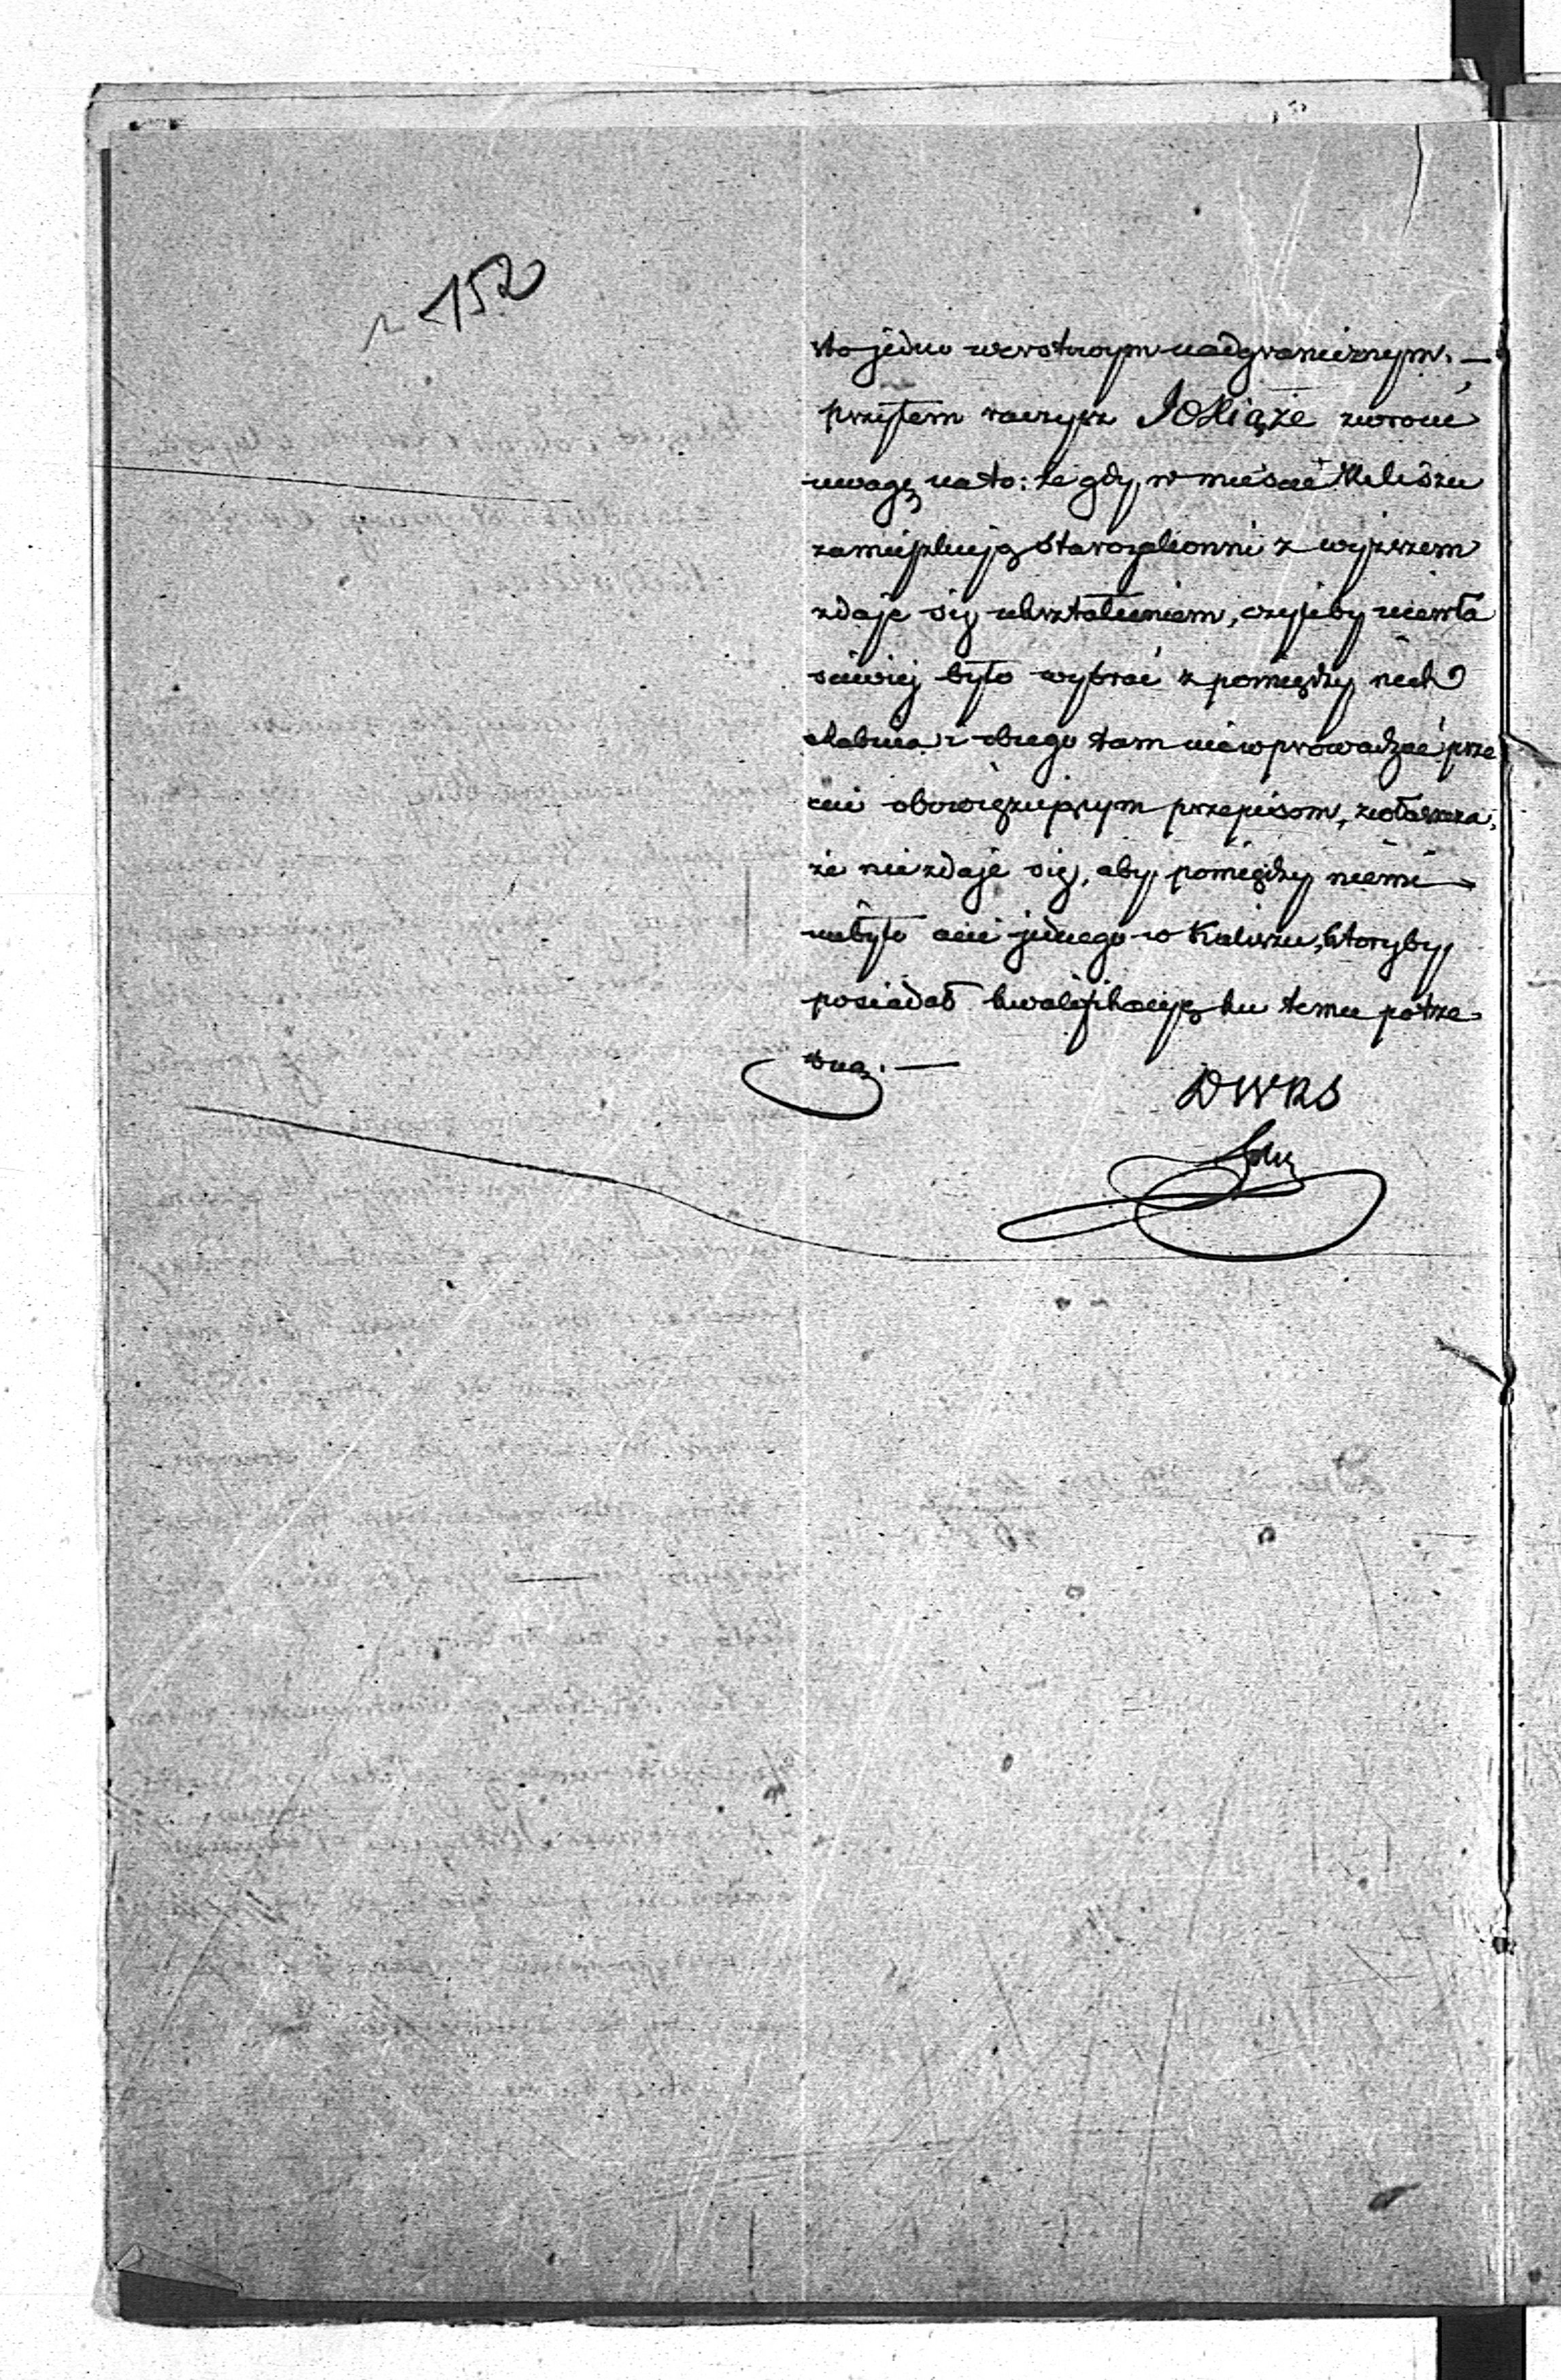 152
sto jedno w rotnym nadgranicznym. —
przytem raczysz JOXiąże zwrocić
uwagę na to: że gdy w mieście Kaliszu
zamieszkują Starozakonni z wyższem
zdaje się ukształceniem, czyliby niewła
sciwiej było wybrać z pomiędzy nich
Rabina i obcego tam niewprowadzać prze
ciw obowięzującym przepisom, zwłaszcza,
że nie zdaje się, aby pomiędzy niemi
niebyło ani jednego w Kaliszu, ktoryby
posiadał kwalifikacyą ku temu potrze
bną. —
DWRS